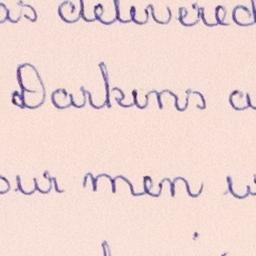 as delivered
Darkens a
our men w